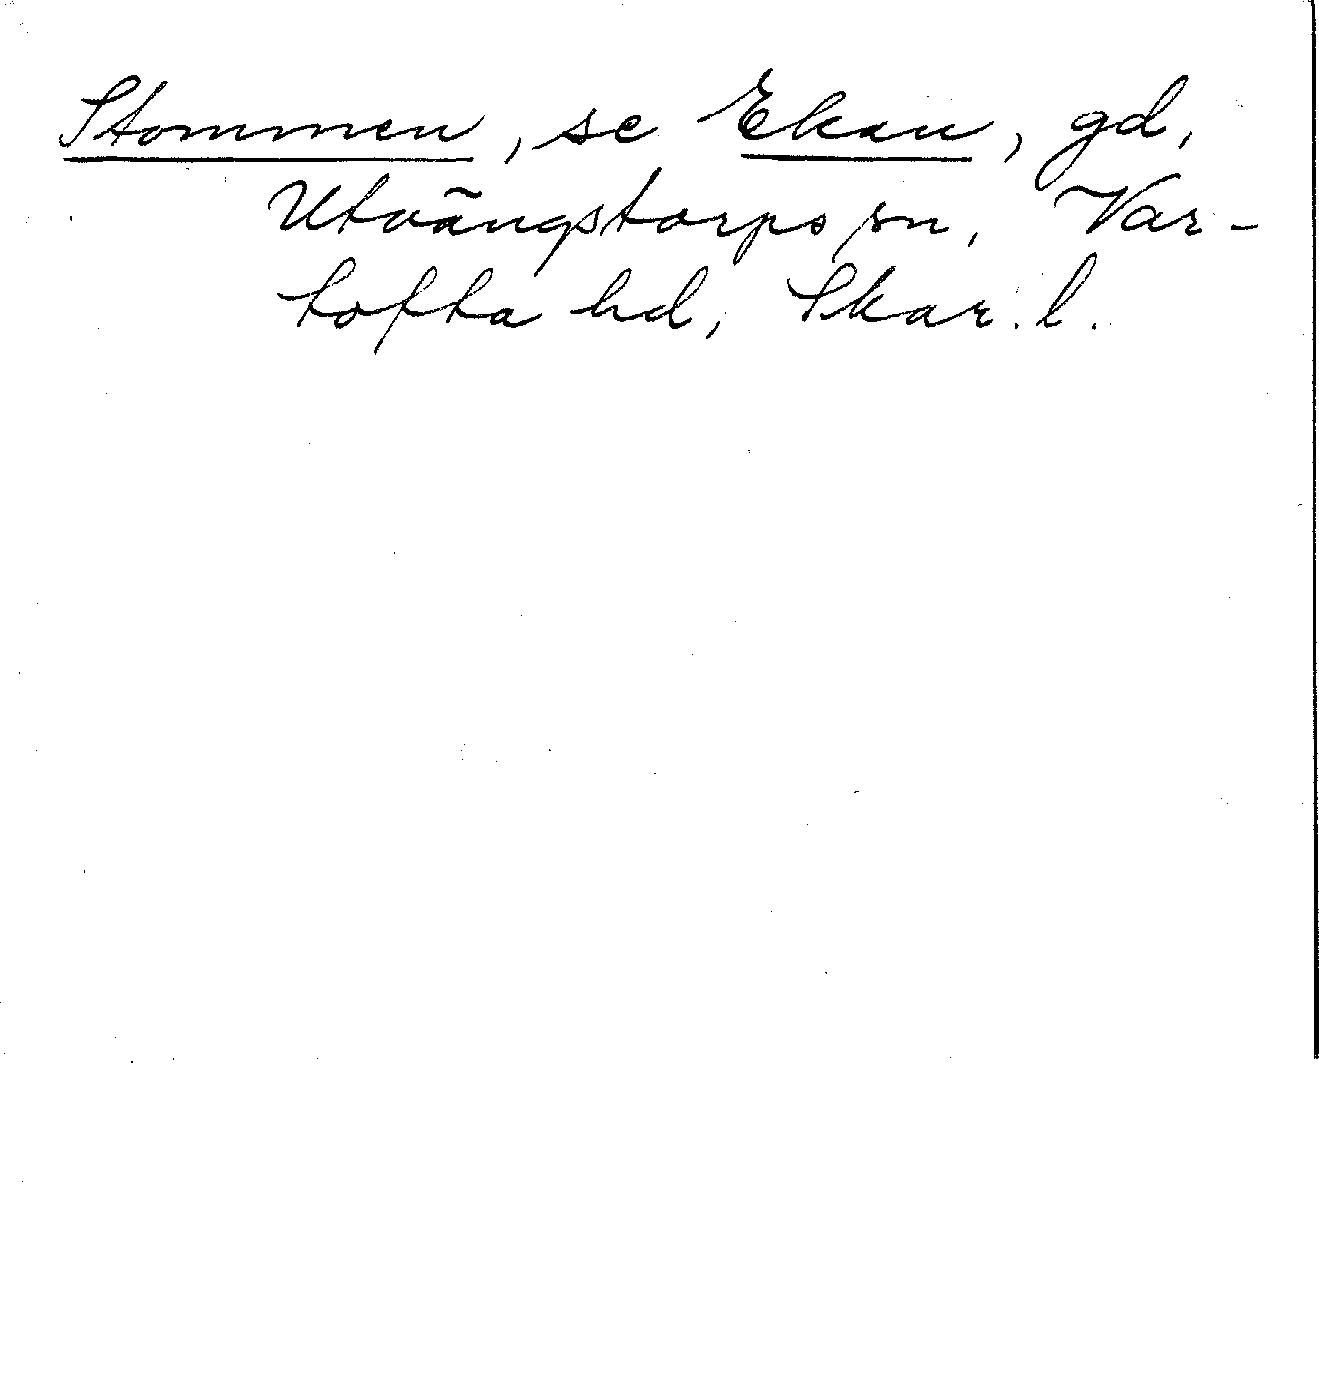 Stommen, se Ekan, gd,
Utvängstorps sn, Var-
tofta hd, Skar. l.